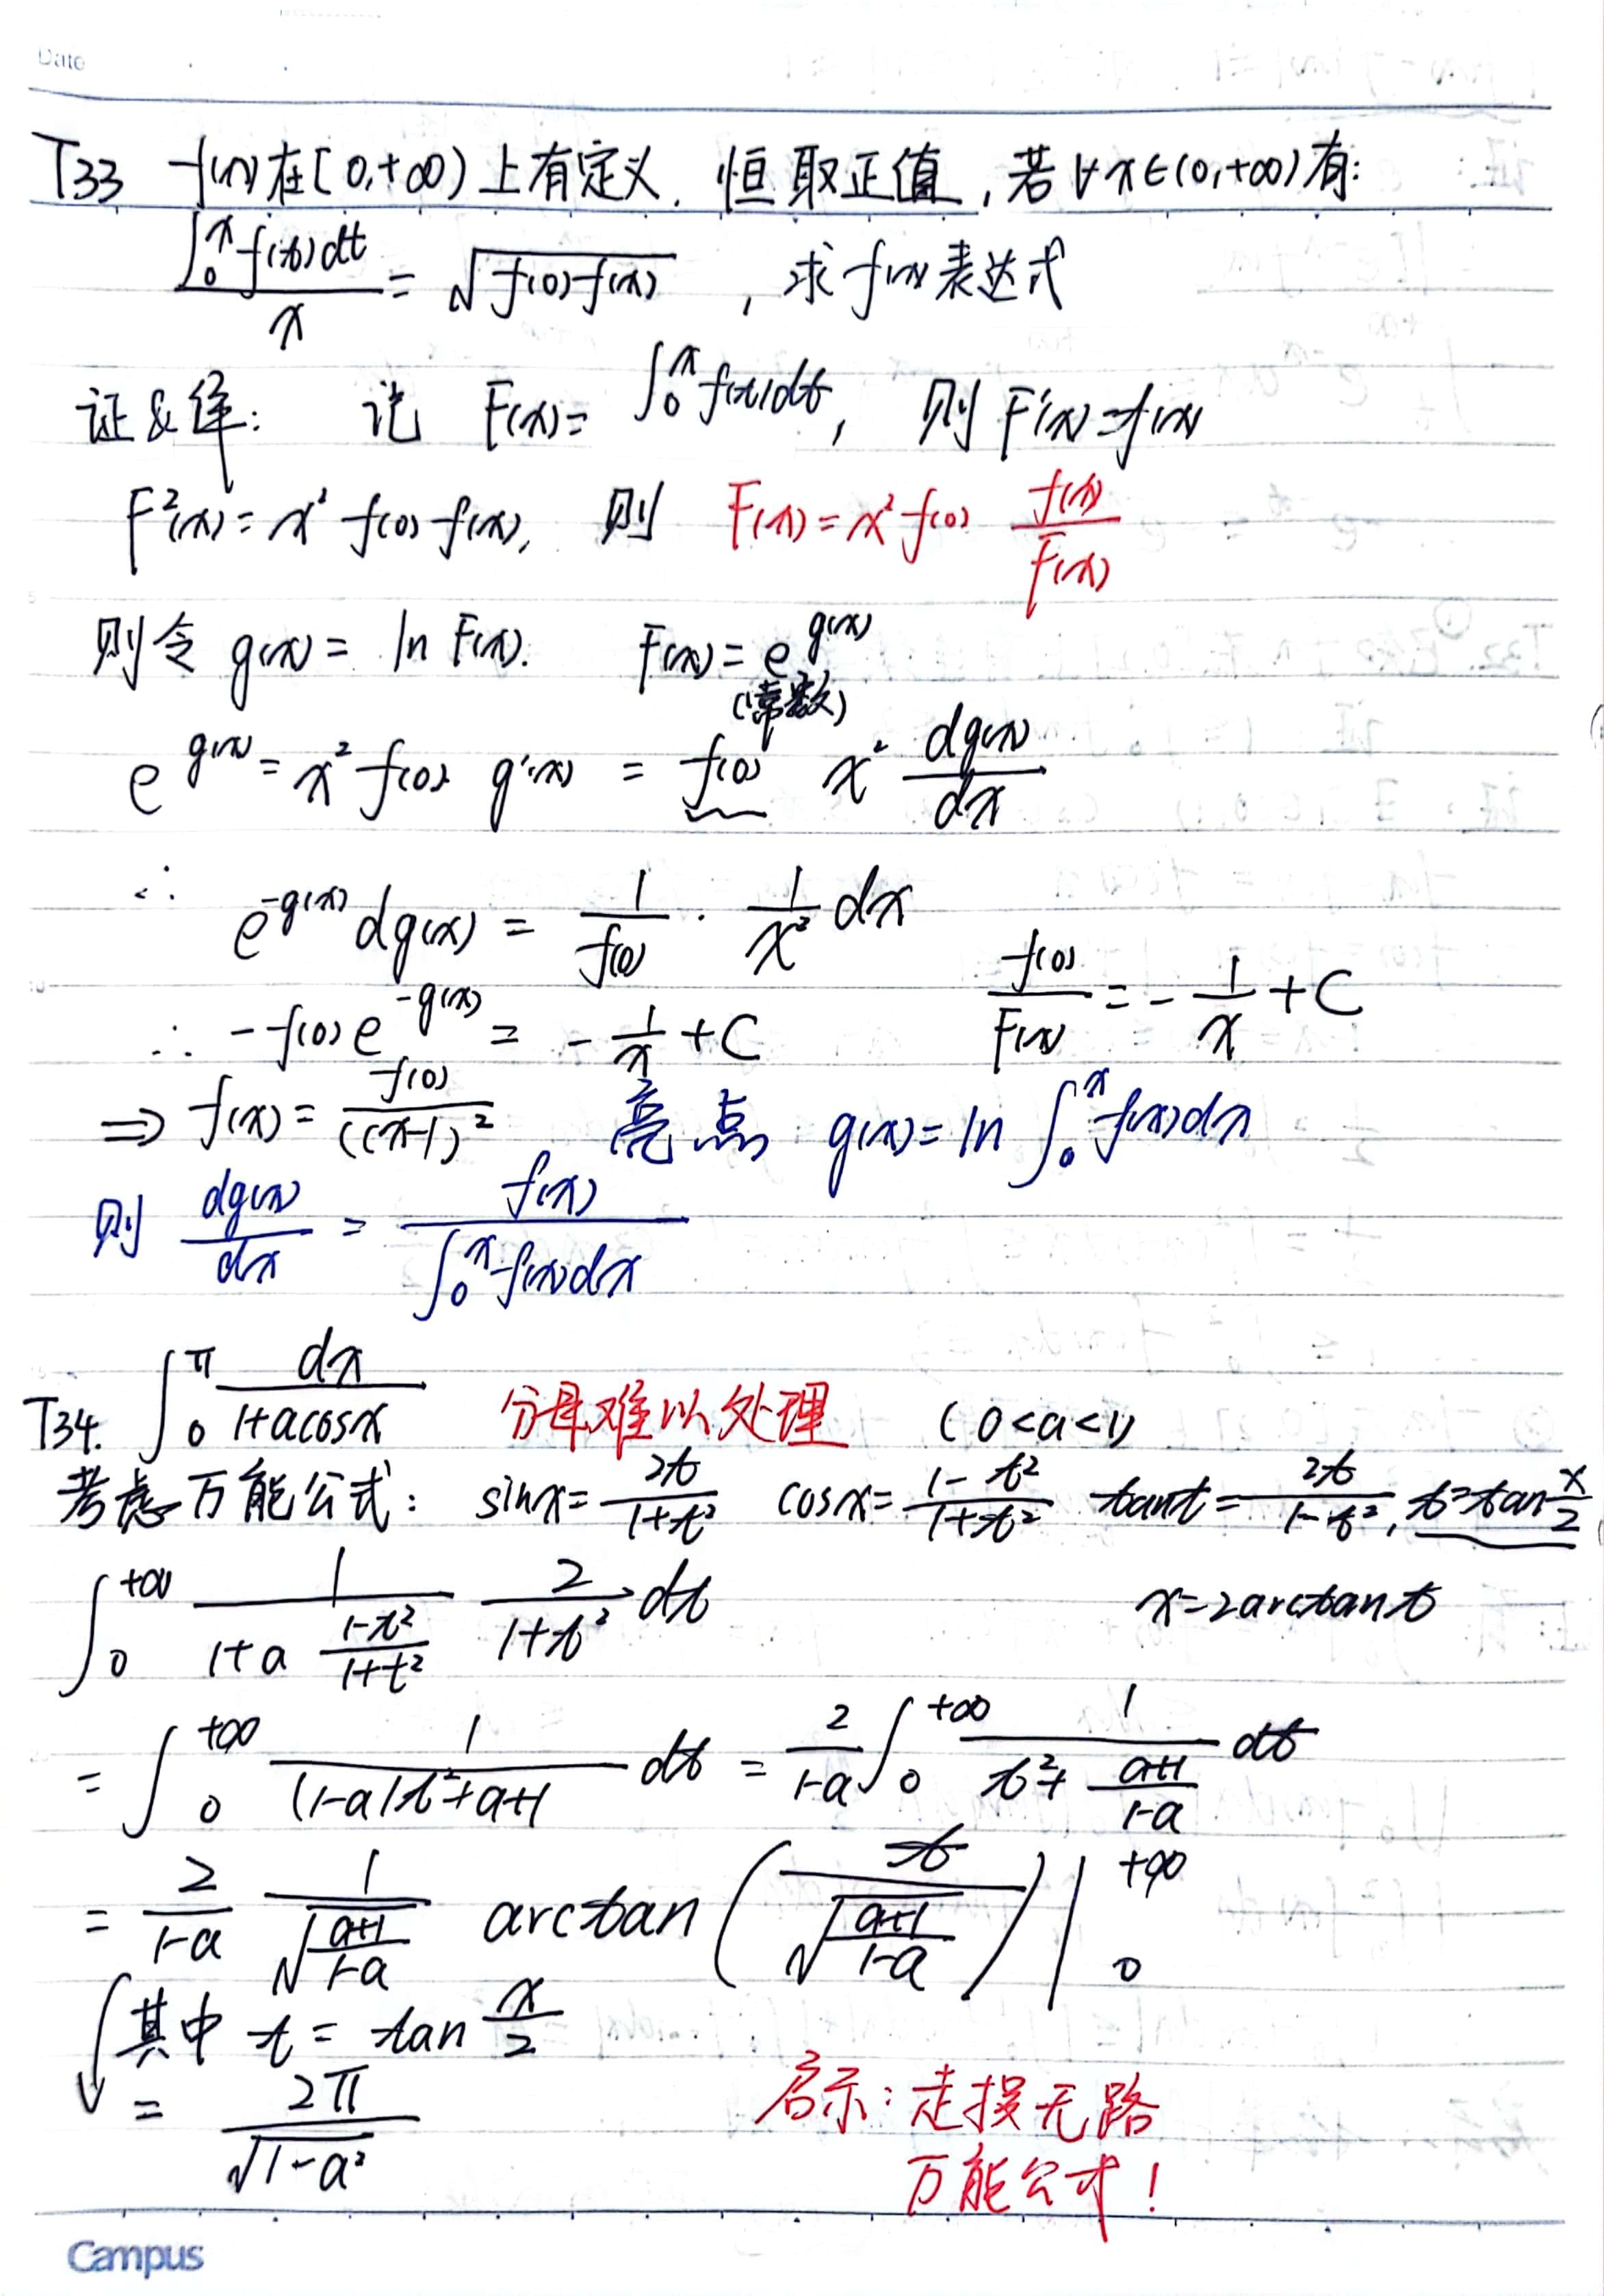 Date
T33 f(x)在[0,+∞)上有定义,恒取正值,若∀x∈(0,+∞)有:
∫₀ˣ f(t)dt / x = √(f(0)f(x)) , 求f(x)表达式
证&解: 记 F(x)= ∫₀ˣ f(t)dt, 则 F'(x)=f(x)
F²(x)= x² f(0) f(x), 则 F(x)= x² f(0) f(x)/F(x)
则令 g(x)= ln F(x). F(x)= e^{g(x)}
(常数)
e^{g(x)} = x² f(0) g'(x) = f(0) x² dg(x)/dx
∴ e^{-g(x)} dg(x) = 1/f(0) · 1/x² dx
∴ -f(0) e^{-g(x)} = - 1/x + C f(0)/F(x) = - 1/x + C
⇒ f(x)= f(0)/(Cx-1)² 亮点: g(x)= ln ∫₀ˣ f(x)dx
则 dg(x)/dx = f(x) / ∫₀ˣ f(x)dx
T34. ∫₀^π dx/(1+acosx) 分母难以处理 (0<a<1)
考虑万能公式: sinx= 2t/(1+t²) cosx= (1-t²)/(1+t²) tant= 2t/(1-t²), t=tan x/2
∫₀^{+∞} 1/(1+a (1-t²)/(1+t²)) 2/(1+t²) dt x=2arctant
= ∫₀^{+∞} 1/((1-a)t²+a+1) dt = 2/(1-a) ∫₀^{+∞} 1/(t²+ (a+1)/(1-a)) dt
= 2/(1-a) 1/√((a+1)/(1-a)) arctan( t/√((a+1)/(1-a)) ) |₀^{+∞}
其中 t = tan x/2
= 2π/√(1-a²) 启示:走投无路
万能公式!
Campus